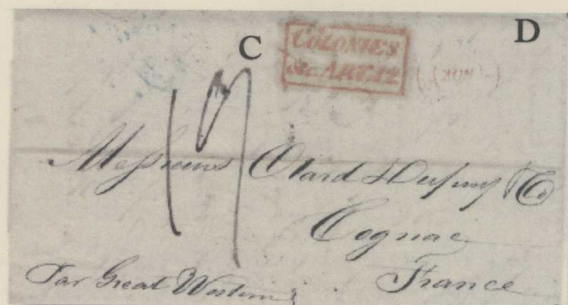 C D
COLONIES
&c. ART. 12
19
Messieurs Otard Dupuy & Co
Cognac
France
Par Great Western